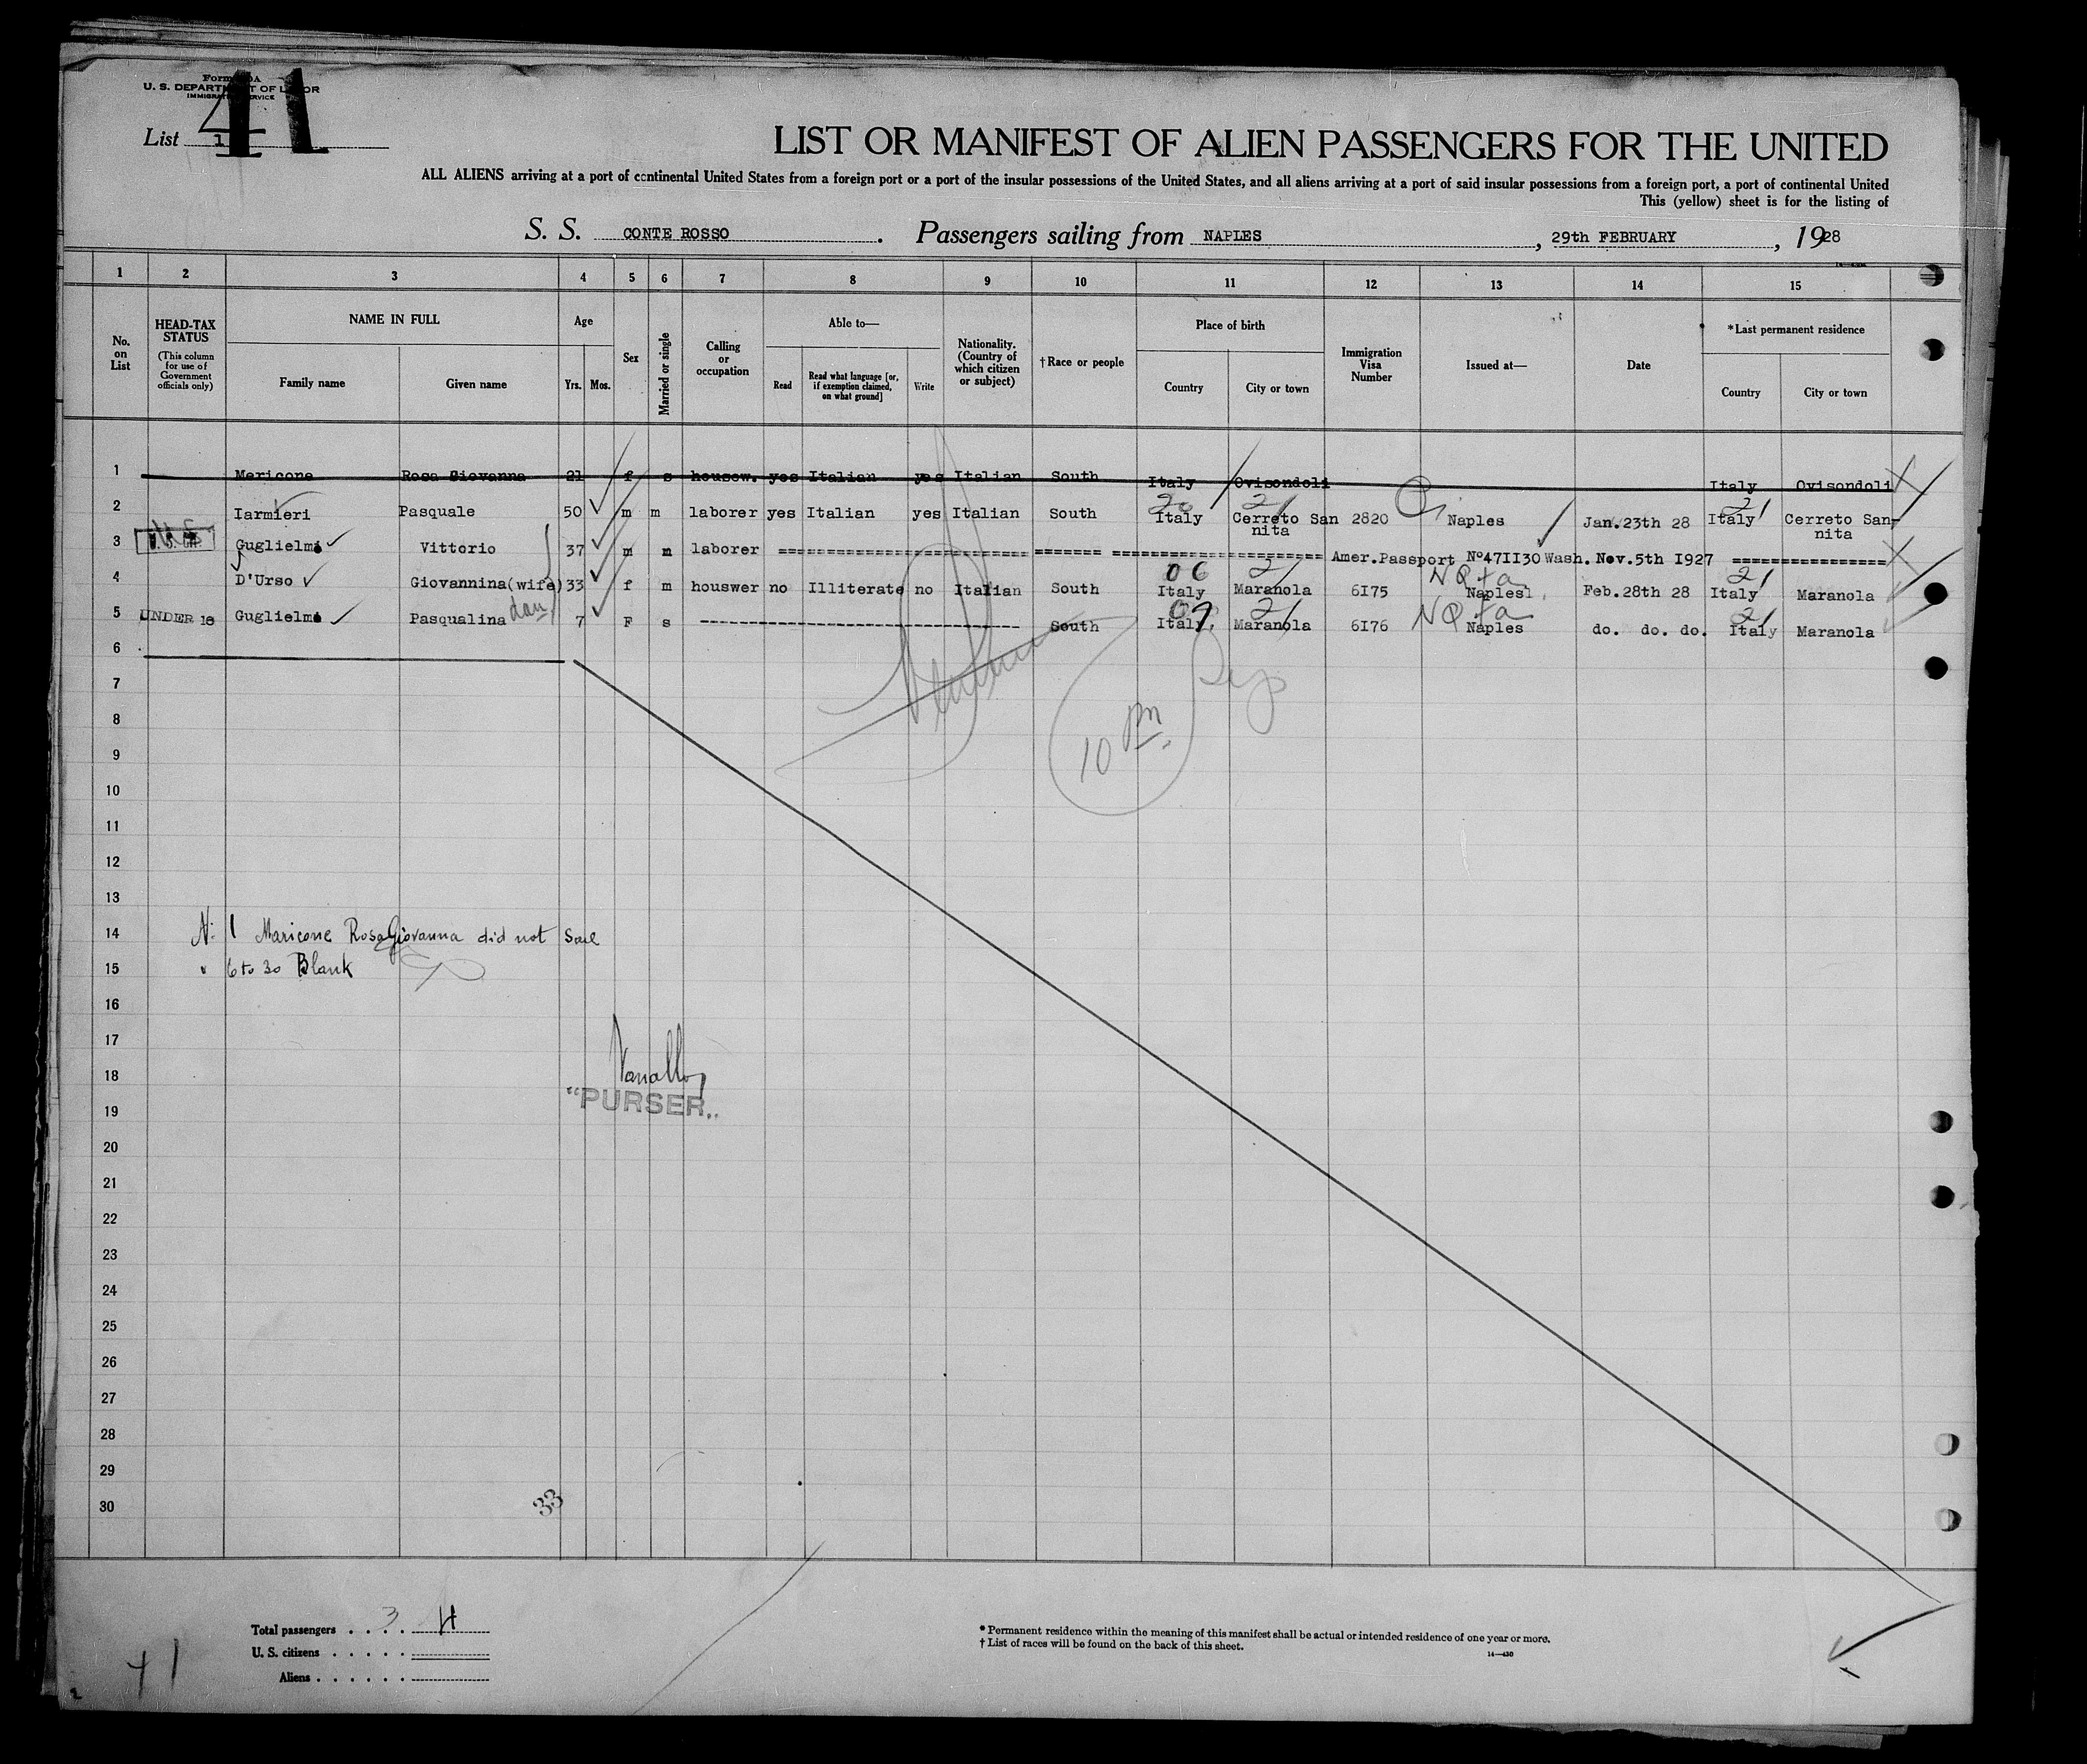 Form
U. S. DEPARTMENT OF LABOR
IMMIGRATION SERVICE
41
List 1
LIST OR MANIFEST OF ALIEN PASSENGERS FOR THE UNITED
ALL ALIENS arriving at a port of continental United States from a foreign port or a port of the insular possessions of the United States, and all aliens arriving at a port of said insular possessions from a foreign port, a port of continental United
This (yellow) sheet is for the listing of
S. S. CONTE ROSSO. Passengers sailing from NAPLES, 29th FEBRUARY, 1928
1 2 3 4 5 6 7 8 9 10 11 12 13 14 15
No. on List
HEAD-TAX STATUS
(This column for use of Government officials only)
NAME IN FULL
Family name Given name
Age
Yrs. Mos.
Sex
Married or single
Calling or occupation
Able to—
Read Read what language [or, if exemption claimed, on what ground] Write
Nationality. (Country of which citizen or subject)
†Race or people
Place of birth
Country City or town
Immigration Visa Number
Issued at—
Date
*Last permanent residence
Country City or town
1 Mericone Rosa Giovanna 21 f s housew. yes Italian yes Italian South Italy Ovisondoli Italy Ovisondoli
2 Iarmieri Pasquale 50 m m laborer yes Italian yes Italian South Italy Cerreto Sannita 2820 Naples Jan.23th 28 Italy Cerreto Sannita
3 Guglielmi Vittorio 37 m m laborer Amer.Passport Nº47II30 Wash. Nov.5th I927
4 D'Urso Giovannina(wife) 33 f m houswer no Illiterate no Italian South 06 Italy 21 Maranola 6I75 NQ Naples Feb.28th 28 21 Italy Maranola
5 UNDER 16 Guglielmi Pasqualina dau 7 F s South 09 Italy 21 Maranola 6I76 NQ Naples do. do. do. 21 Italy Maranola
6
7
8
9
10 10 pm
11
12
13
14 Nº 1 Maricone Rosa Giovanna did not Sail
15 " 6 to 30 Blank
16
17
18
19 "PURSER"
20
21
22
23
24
25
26
27
28
29
30
33
Total passengers . . . . 3 4
U. S. citizens . . . . .
Aliens . . . . . .
41
* Permanent residence within the meaning of this manifest shall be actual or intended residence of one year or more.
† List of races will be found on the back of this sheet.
14—430
2